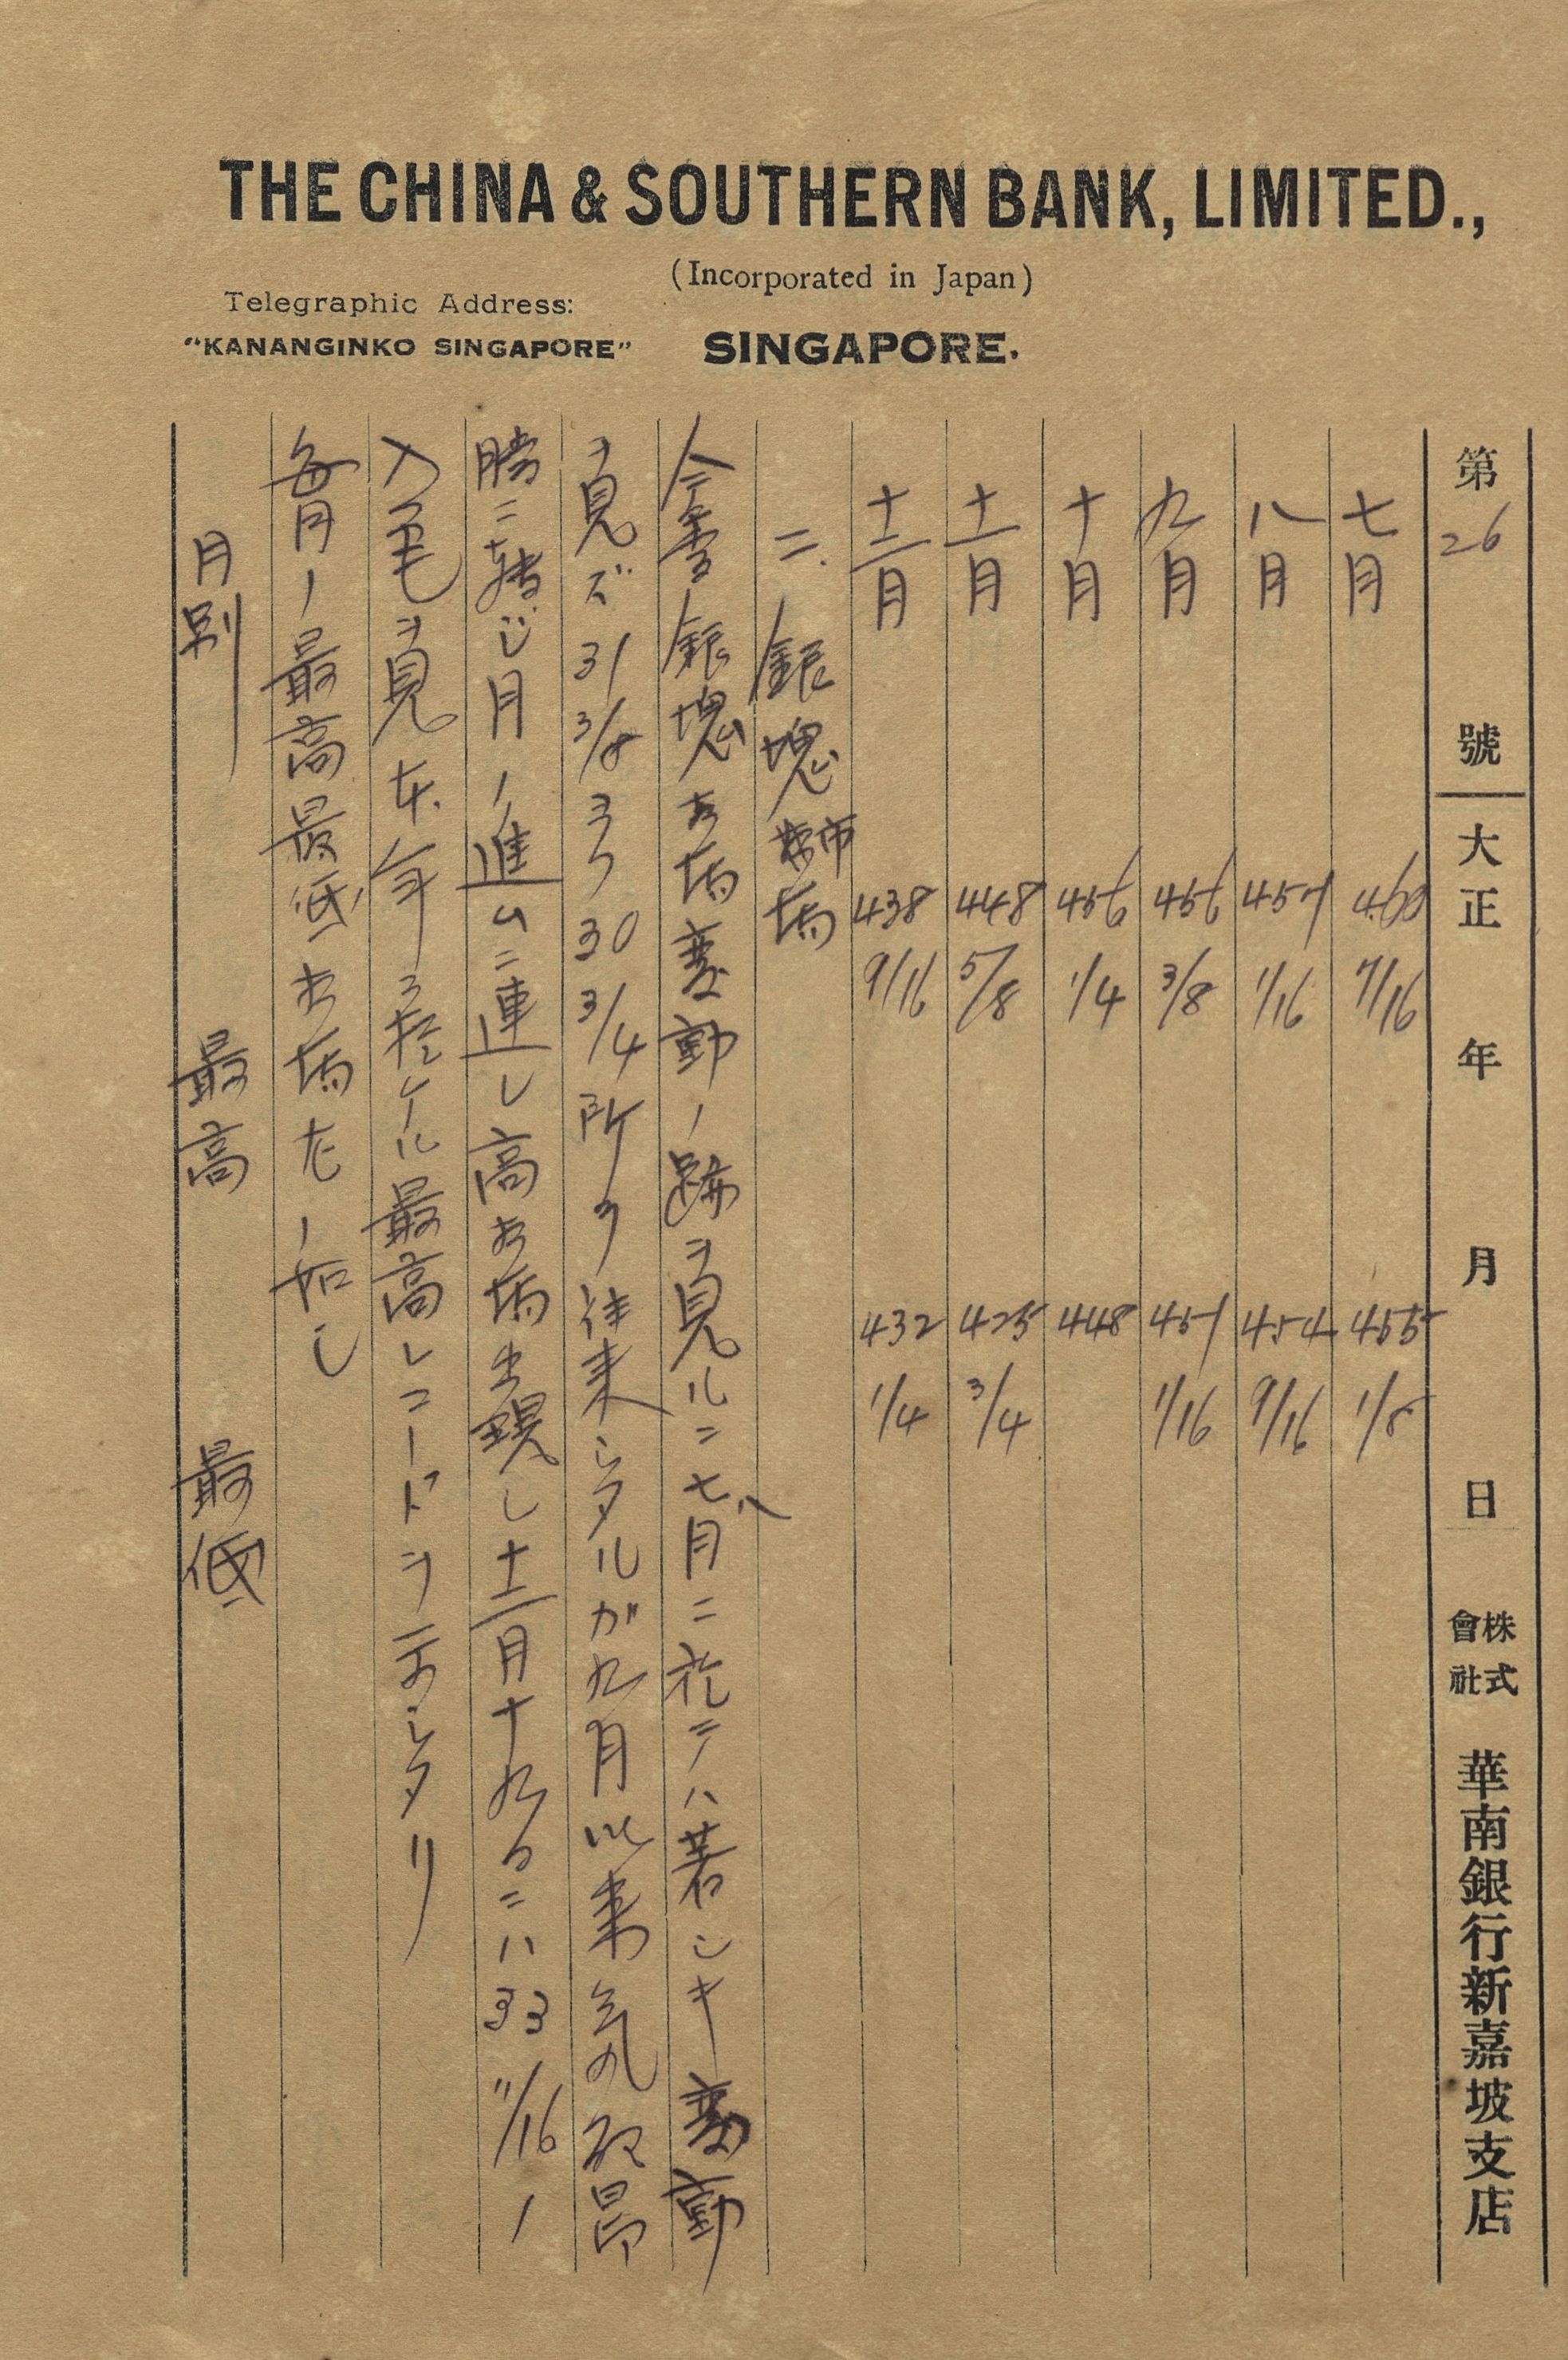 THE CHINA & SOUTHERN BANK, LIMITED.,
(Incorporated in Japan)
Telegraphic Address:
"KANANGINKO SINGAPORE"
SINGAPORE.
第26號 大正 年 月 日 株式會社 華南銀行新嘉坡支店
七月 460 7/16 455 1/8
八月 457 1/16 454 9/16
九月 456 3/8 451 1/16
十月 456 1/4 448
十一月 448 5/8 425 3/4
十二月 438 9/16 432 1/4
二、銀塊市場
今季銀塊市場変動ノ跡ヲ見ルニ七八月ニ於テハ著シキ変動
ヲ見ズ 31 3/8 ヨリ 30 3/4 所ヲ往来シタルガ九月以来気配昂
騰ニ転ジ月ノ進ムニ連レ高市場出現し十二月十九日ニハ 33 11/16 ノ
入電ヲ見本年ニ於ケル最高レコードヲ示シタリ
毎月ノ最高最低市場左ノ如し
月別 最高 最低